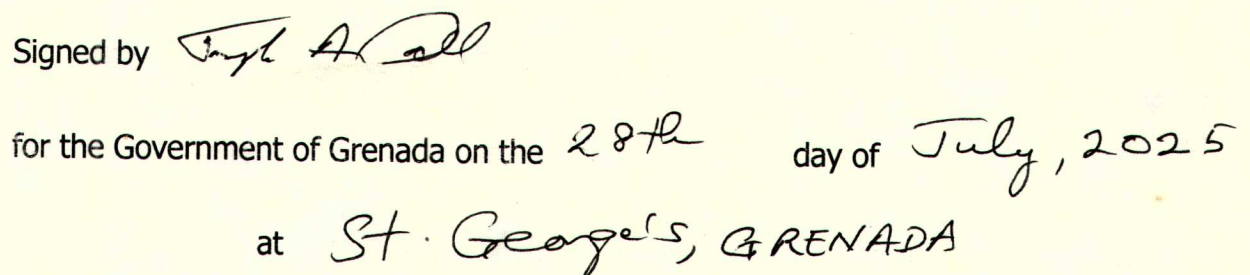 Signed by Joseph A. Andall
for the Government of Grenada on the 28th day of July, 2025
at St. George's, GRENADA